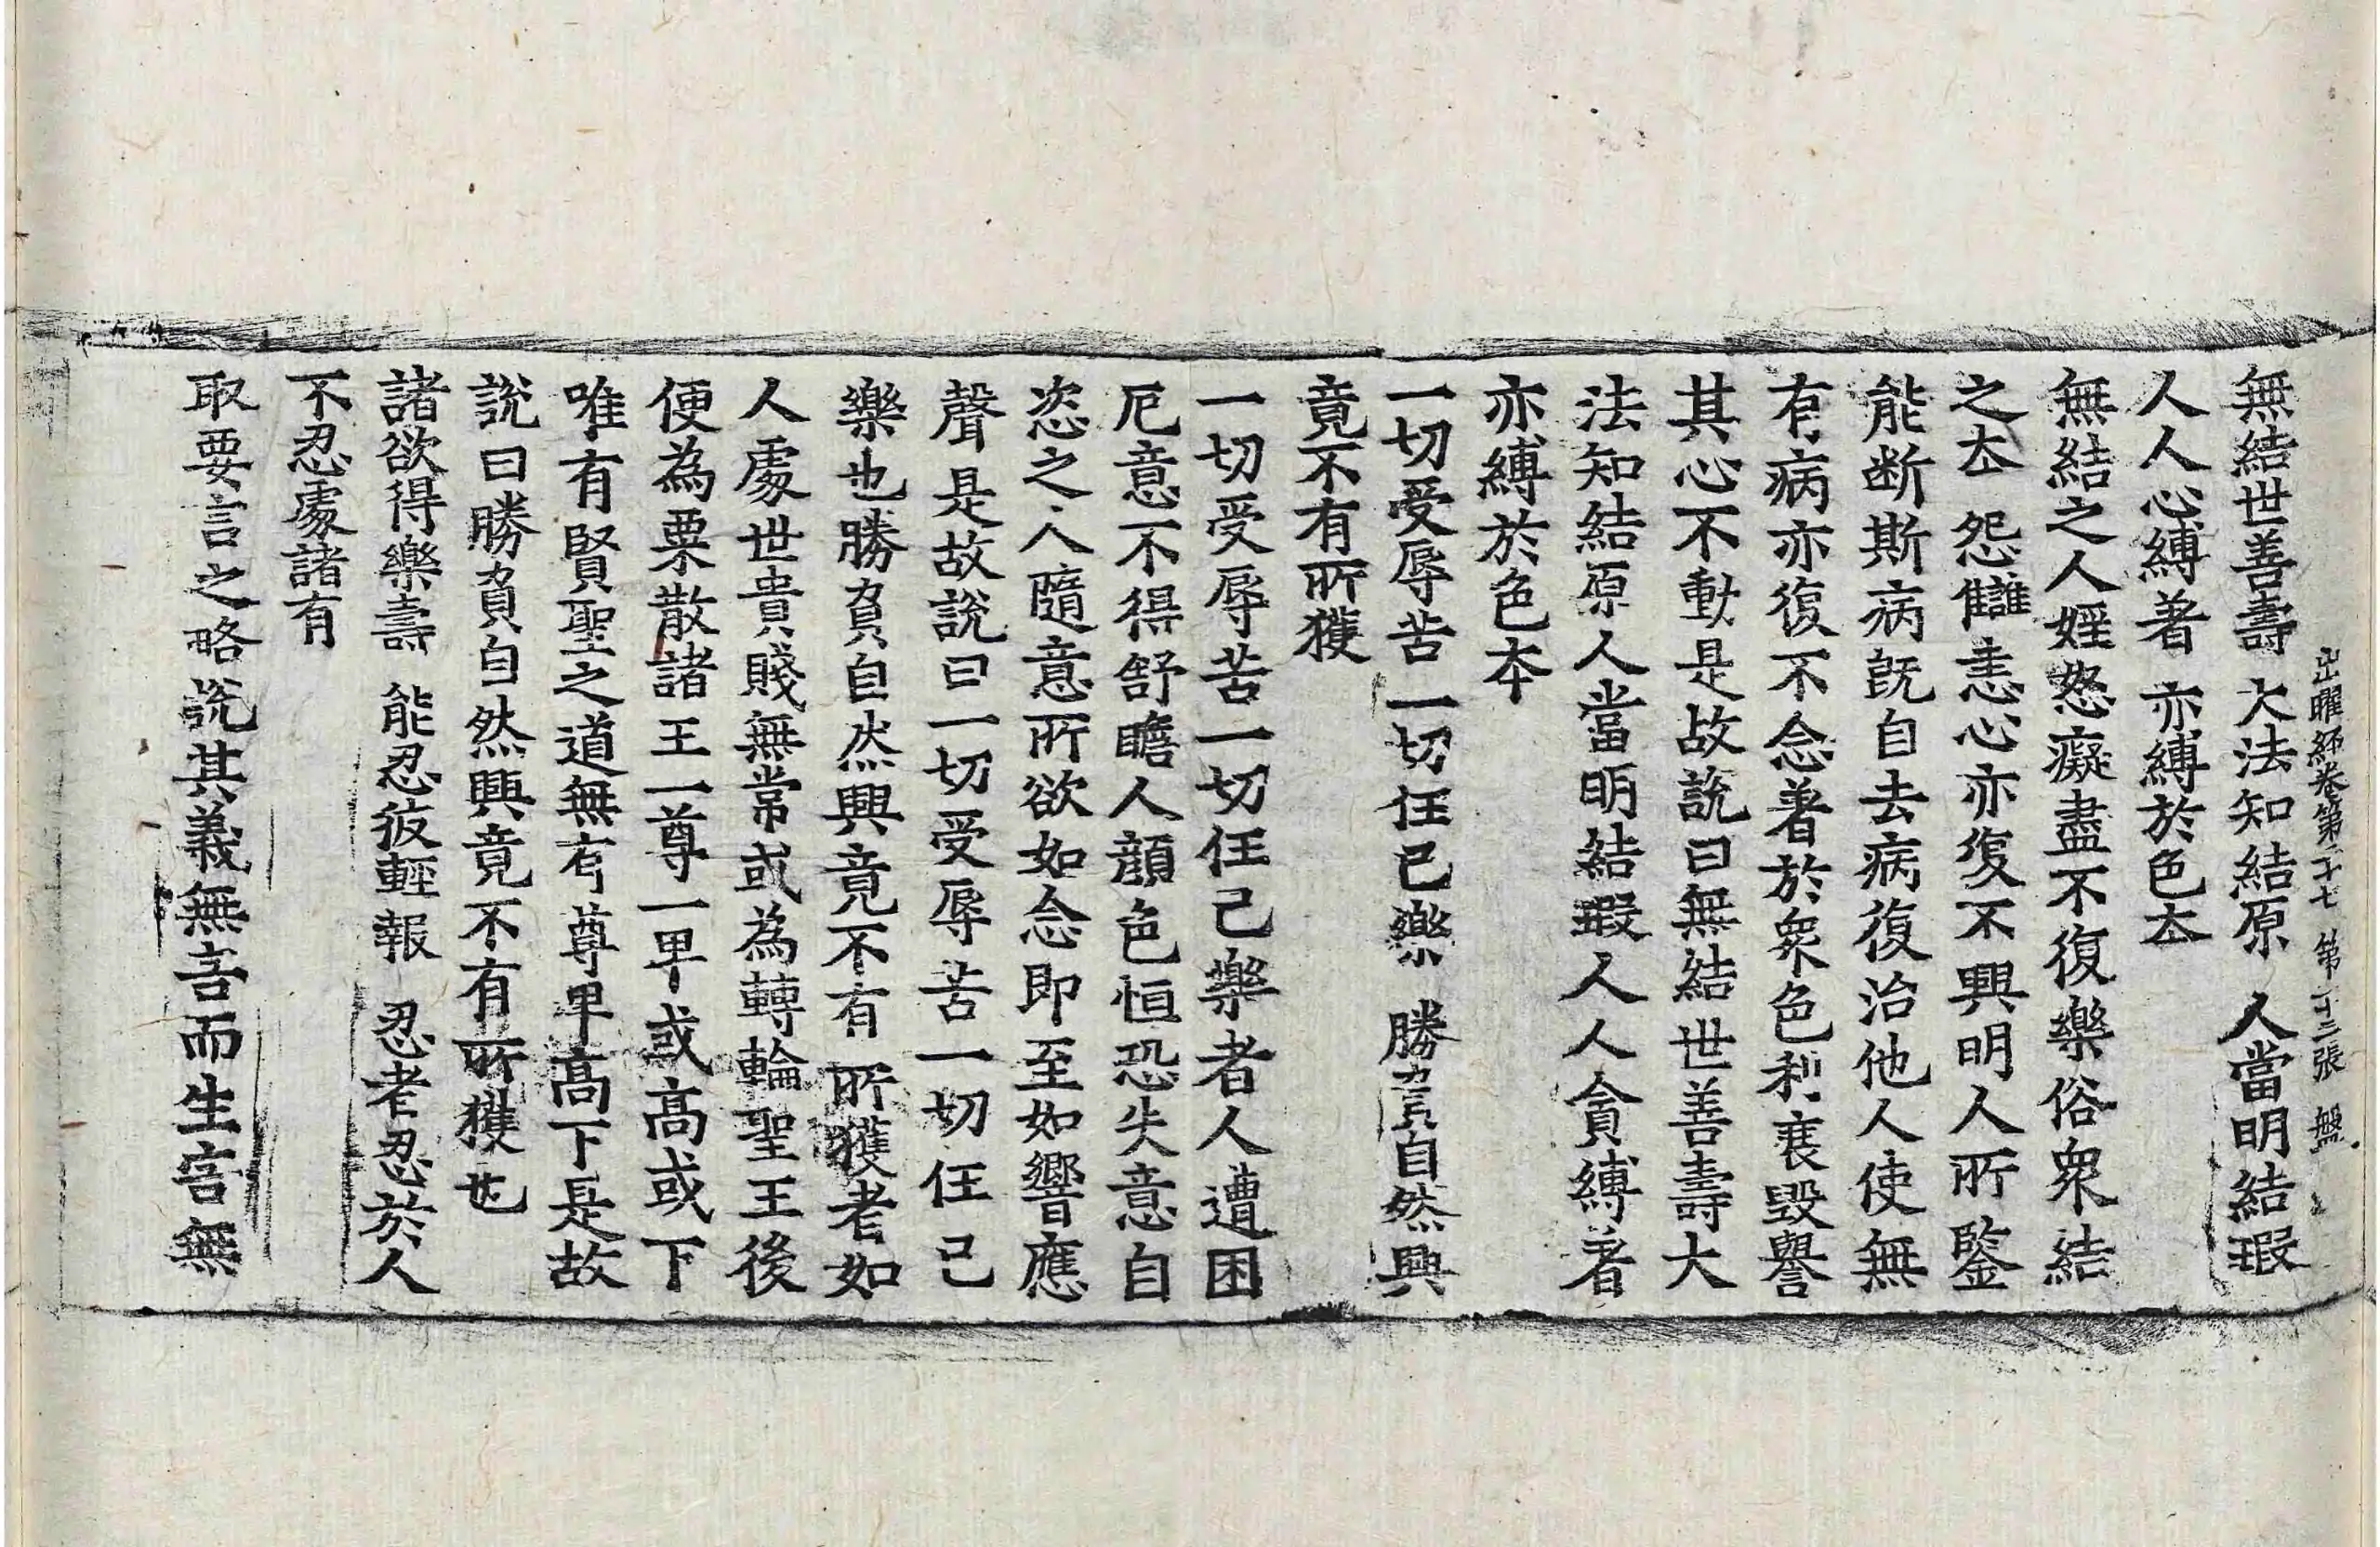 出曜經卷第二十七 第十三張 盤
無結世善壽 大法知結原 人當明結瑕
人人心縛著 亦縛於色夲
無結之人婬怒癡盡不復樂俗衆結
之夲怨讎恚心亦復不興明人所鑒
能断斯病旣自去病復治他人使無
有病亦復不念著於衆色利衰毀譽
其心不動是故說曰無結世善壽大
法知結原人當明結瑕人人貪縛著
亦縛於色夲
一切受辱苦 一切任己樂 勝負自然興
竟不有所獲
一切受辱苦一切任己樂者人遭困
厄意不得舒瞻人顔色恒恐失意自
恣之人隨意所欲如念即至如響應
聲是故說曰一切受辱苦一切任己
樂也勝負自然興竟不有所獲者如
人處世貴賤無常或為轉輪聖王後
便為粟散諸王一尊一卑或高或下
唯有賢聖之道無有尊卑高下是故
說曰勝負自然興竟不有所獲也
諸欲得樂壽 能忍彼輕報 忍者忍於人
不忍處諸有
取要言之略說其義無害而生害無